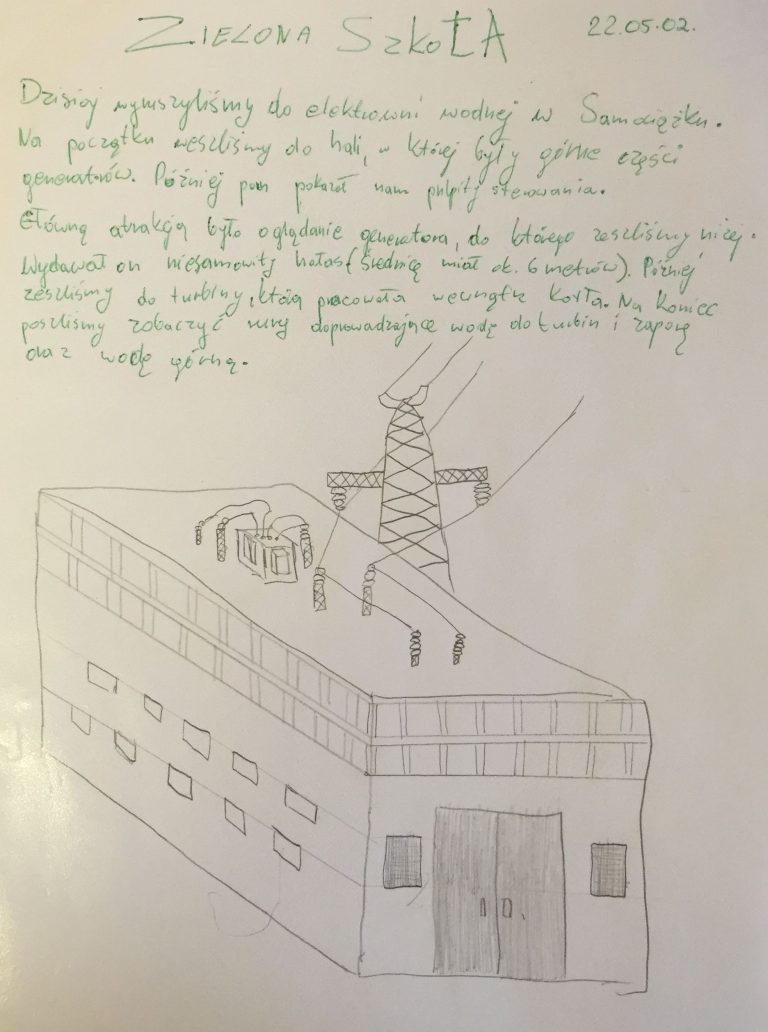 ZIELONA SZKOŁA 22.05.02.
Dzisiaj wyruszyliśmy do elektrowni wodnej w Samociążku.
Na początku weszliśmy do hali, w której były górne części
generatorów. Później pan pokazał nam pulpity sterowania.
Główną atrakcją było oglądanie generatora, do którego zeszliśmy niżej.
Wydawał on niesamowity hałas (średnicę miał ok. 6 metrów). Później
zeszliśmy do turbiny, która pracowała wewnątrz koryta. Na koniec
poszliśmy zobaczyć rury doprowadzające wodę do turbin i zaporę
oraz wodę górną.